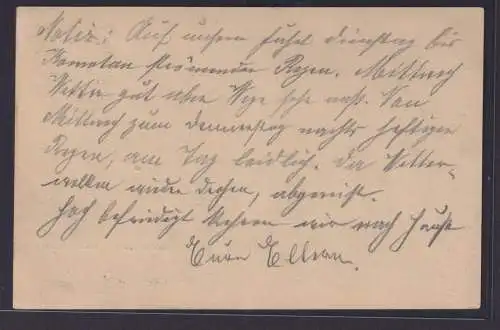 Notiz: Auf unsere Fahrt Dienstag bis
Kometau strömender Regen. Mittwoch
Wetter gut aber Wege sehr naß. Von
Mittwoch zum Donnerstag nachts heftiger
Regen, am Tag leidlich. Da Wetter-
wolken wieder drohen, abgereist.
Hoch befriedigt kehren wir nach Hause
Eure Eltern.